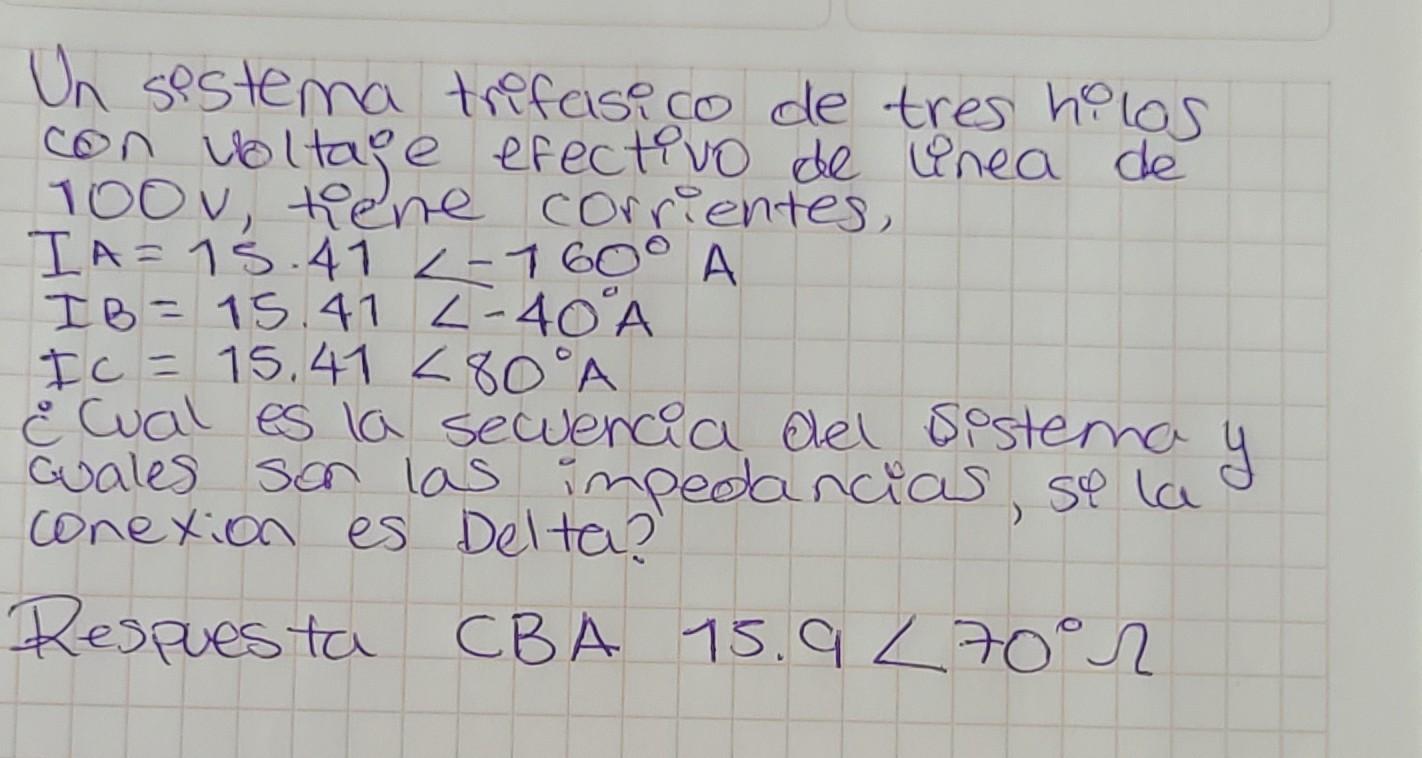 Un sistema trifasico de tres hilos
con voltaje efectivo de linea de
100v, tiene corrientes,
IA = 15.41 ∠-160° A
IB = 15.41 ∠-40°A
IC = 15.41 ∠80°A
¿Cual es la secuencia del sistema y
cuales son las impedancias, si la
conexion es Delta?
Respuesta CBA 15.9 ∠70° Ω